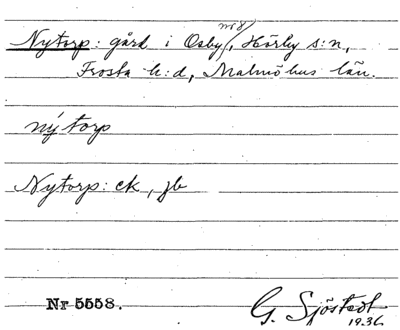 Nytorp: gård i Osby nr 8, Hörby s:n,
Frosta h:d, Malmöhus län.
nýtorp
Nytorp: ek, jb
Nr 5558.
G. Sjöstedt
1936